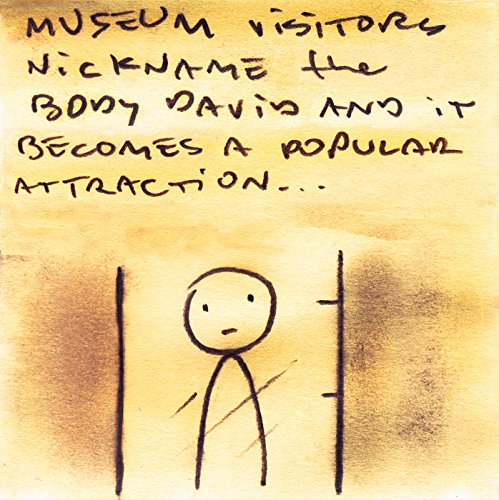 MUSEUM VISITORS
NICKNAME the
BODY DAVID AND IT
BECOMES A POPULAR
ATTRACTION...